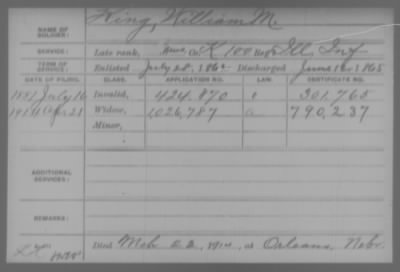 NAME OF SOLDIER: King, William M.
SERVICE: Late rank, Co. K 100 Reg't Ill Inf
TERM OF SERVICE: Enlisted July 28, 1862 Discharged June 12, 1865
DATE OF FILING. CLASS. APPLICATION NO. LAW. CERTIFICATE NO.
1881 July 16 Invalid, 424.870 301.765
1914 Apr 21 Widow, 1026,787 790,237
Minor,
ADDITIONAL SERVICES:
REMARKS:
Died Mch 1914, at Orleans, Nebr.